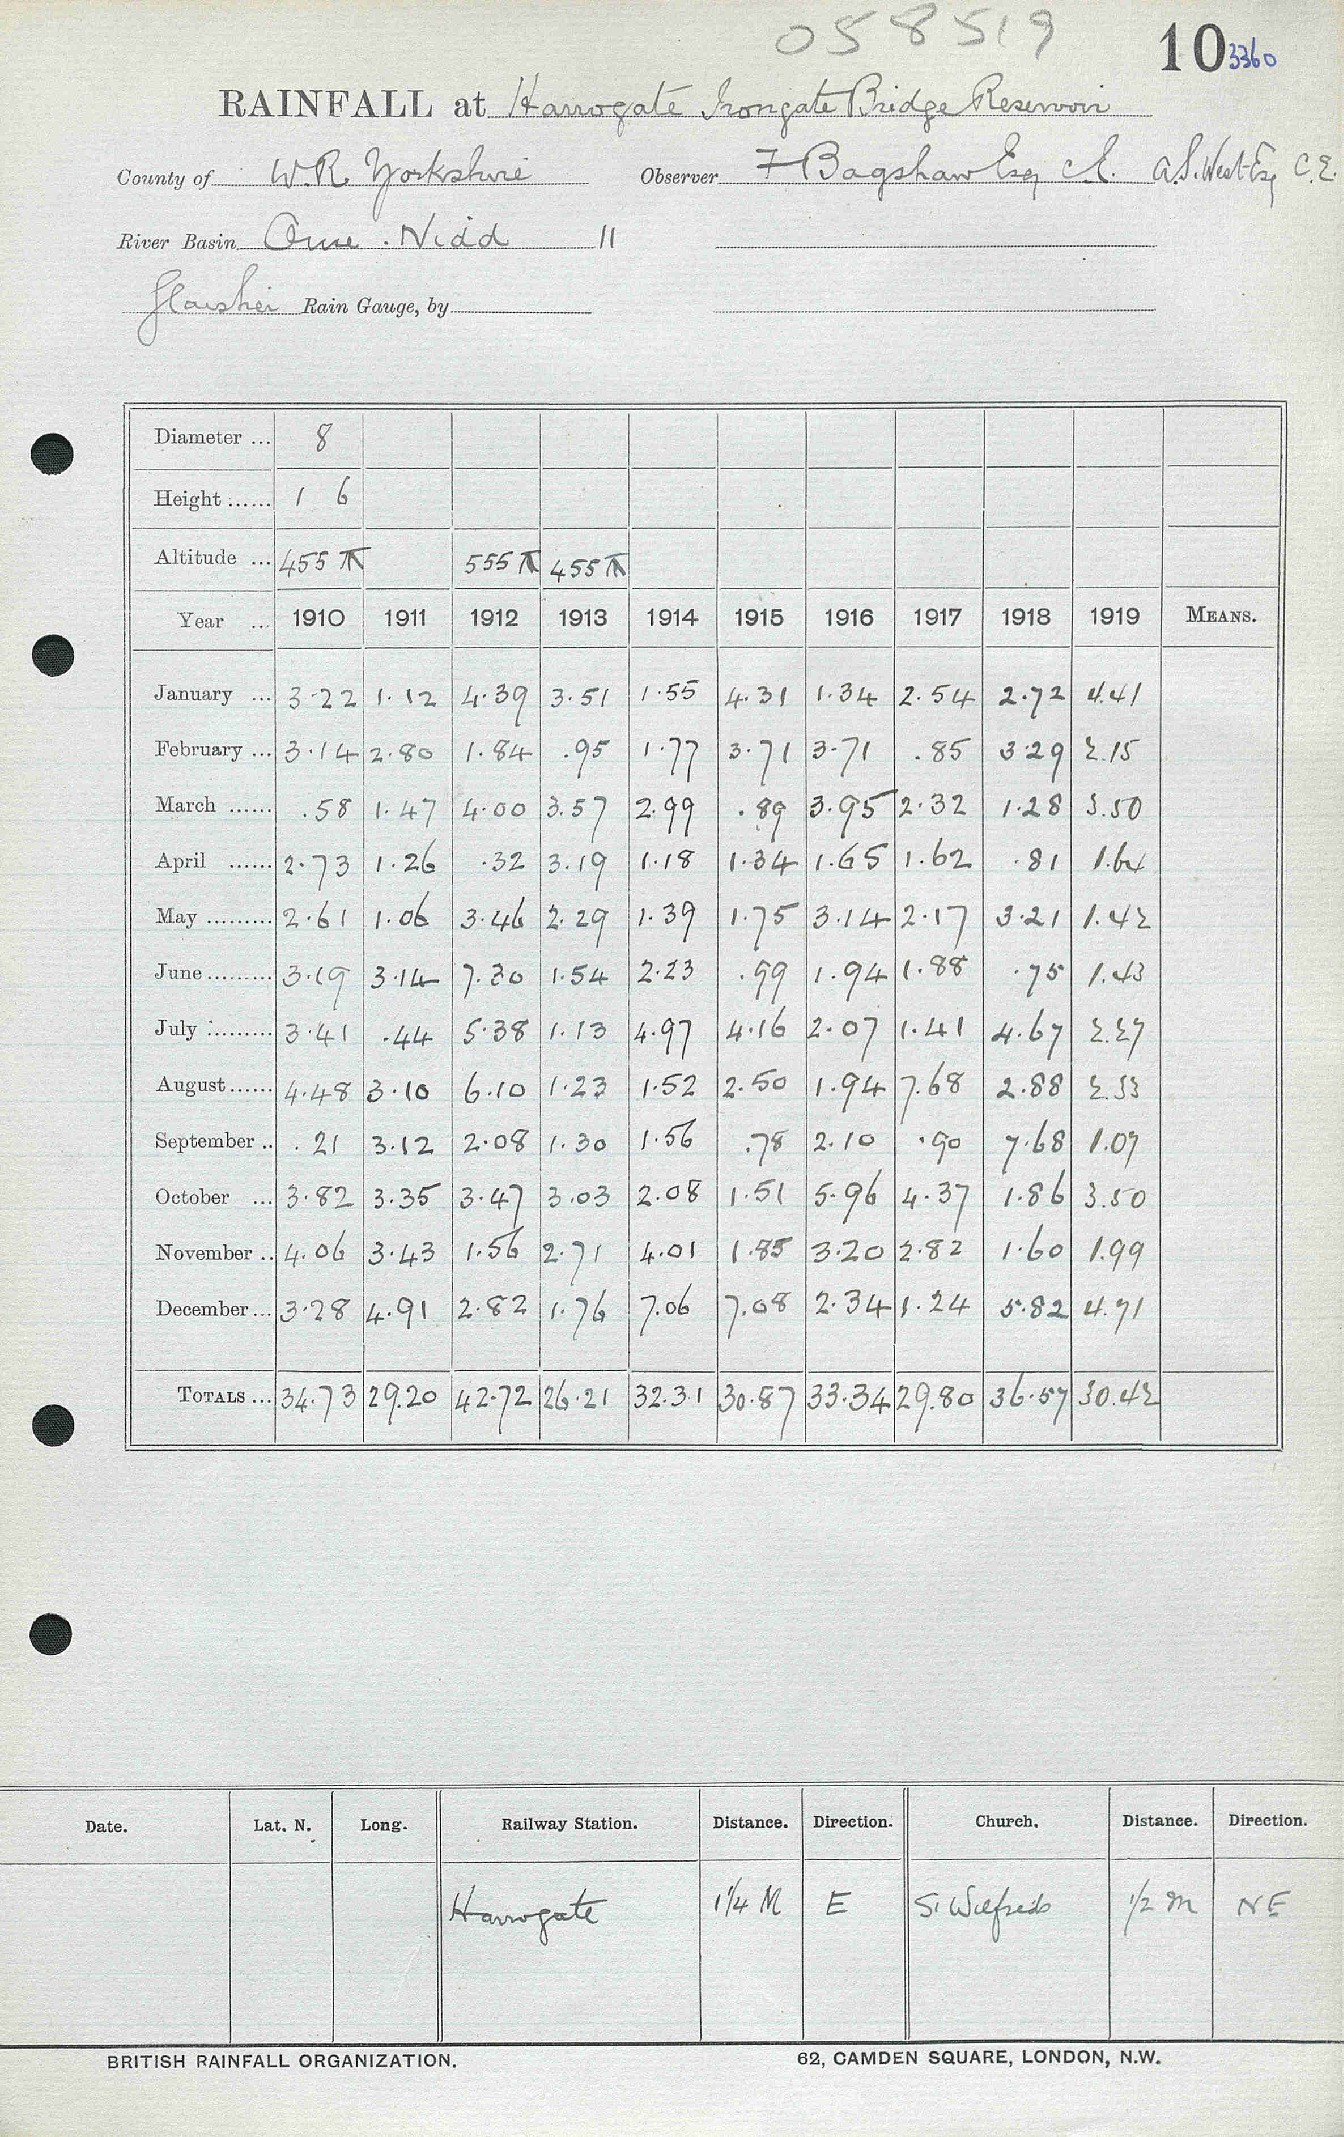 058519
10 3360
RAINFALL at Harrogate Irongate Bridge Reservoir
County of W.R. Yorkshire Observer F Bagshaw Esq C.E. A.S. West Esq C.E.
River Basin Ouse . Nidd 11
Glaisher Rain Gauge, by
Diameter ... 8
Height ...... 1 6
Altitude ... 455 T 555 T 455 T
Year ... 1910 1911 1912 1913 1914 1915 1916 1917 1918 1919 MEANS.
January ... 3.22 1.12 4.39 3.51 1.55 4.31 1.34 2.54 2.72 4.41
February ... 3.14 2.80 1.84 .95 1.77 3.71 3.71 .85 3.29 2.15
March ...... .58 1.47 4.00 3.57 2.99 .89 3.95 2.32 1.28 3.50
April ...... 2.73 1.26 .32 3.19 1.18 1.34 1.65 1.62 .81 1.64
May ......... 2.61 1.06 3.46 2.29 1.39 1.75 3.14 2.17 3.21 1.42
June ......... 3.19 3.14 7.30 1.54 2.23 .99 1.94 1.88 .75 1.43
July ......... 3.41 .44 5.38 1.13 4.97 4.16 2.07 1.41 4.67 2.27
August ...... 4.48 3.10 6.10 1.23 1.52 2.50 1.94 7.68 2.88 2.33
September .. .21 3.12 2.08 1.30 1.56 .78 2.10 .90 7.68 1.07
October ... 3.82 3.35 3.47 3.03 2.08 1.51 5.96 4.37 1.86 3.50
November .. 4.06 3.43 1.56 2.71 4.01 1.85 3.20 2.82 1.60 1.99
December ... 3.28 4.91 2.82 1.76 7.06 7.08 2.34 1.24 5.82 4.71
TOTALS ... 34.73 29.20 42.72 26.21 32.31 30.87 33.34 29.80 36.57 30.42
Date. Lat. N. Long. Railway Station. Distance. Direction. Church. Distance. Direction.
Harrogate 1¼ M E St Wilfreds ½ M NE
BRITISH RAINFALL ORGANIZATION. 62, CAMDEN SQUARE, LONDON, N.W.